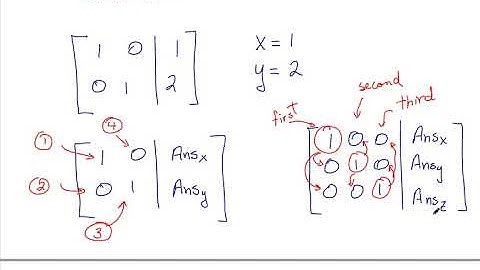 1 0 | 1
0 1 | 2
x = 1
y = 2
① ④
1 0 | Ansx
② 0 1 | Ansy
③
first second third
1 0 0 | Ansx
0 1 0 | Ansy
0 0 1 | Ansz